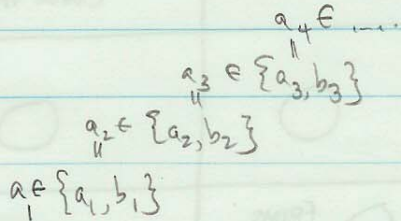 a₄ ∈ ....
||
a₃ ∈ {a₃, b₃}
||
a₂ ∈ {a₂, b₂}
||
a ∈ {a₁, b₁}
|